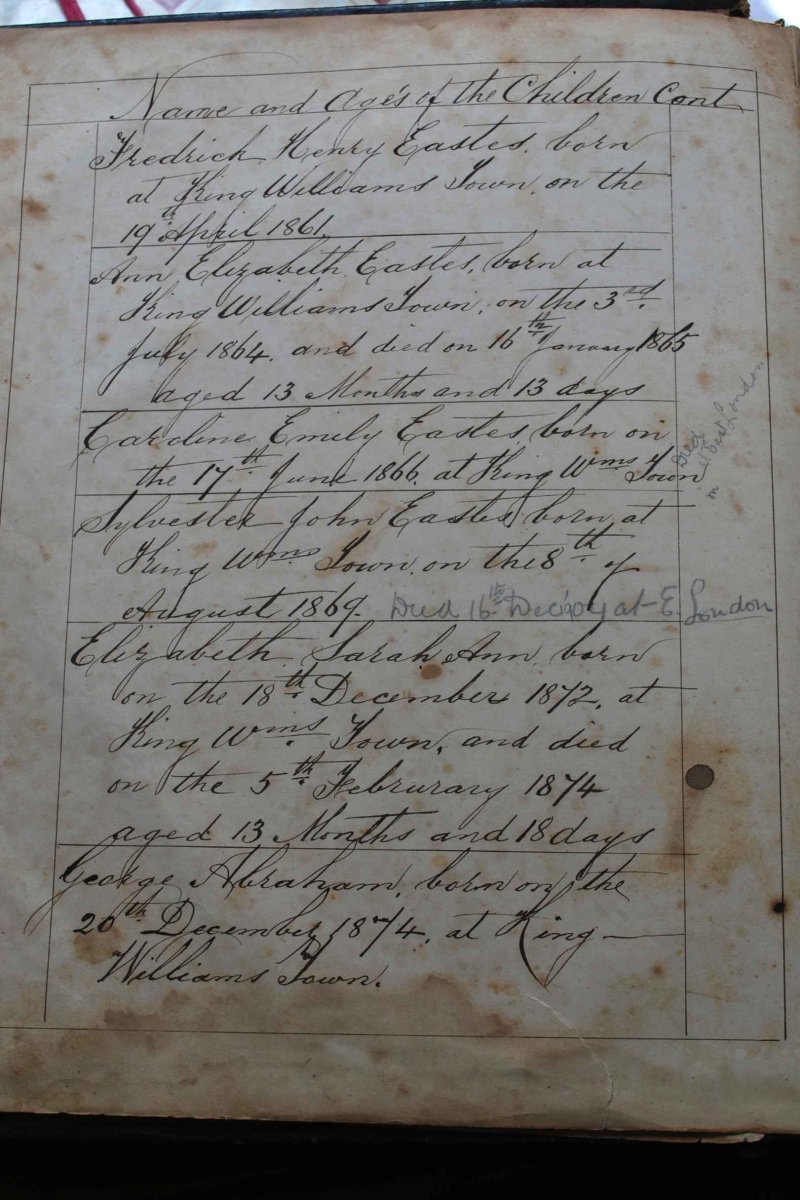 Name and Age's of the Children Cont
Fredrick Henry Eastes, born
at King Williams Town, on the
19th April 1861.
Ann Elizabeth Eastes, born at
King Williams Town, on the 3rd
July 1864. and died on 16th January 1865
aged 13 Months and 13 days
Caroline Emily Eastes, born on
the 17th June 1866, at King Wms Town
Died
in West London
Sylvester John Eastes, born at
King Wms Town, on the 8th of
August 1869. Died 16th Dec 1904 at E. London
Elizabeth Sarah Ann, born
on the 18th December 1872, at
King Wms Town, and died
on the 5th Februrary 1874
aged 13 Months and 18 days
George Abraham, born on the
20th December 1874, at King
Williams Town.